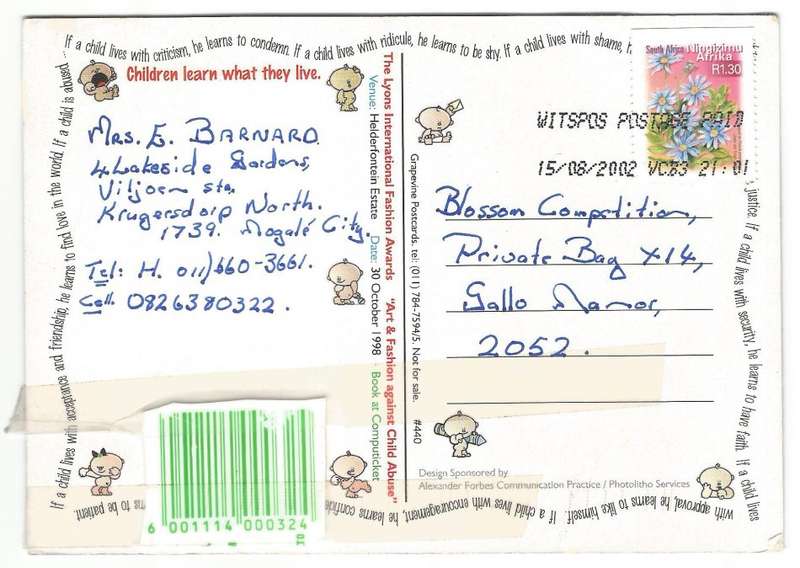 If a child lives with criticism, he learns to condemn. If a child lives with ridicule, he learns to be shy. If a child lives with shame, h
justice. If a child lives with security, he learns to have faith. If a child lives
with approval, he learns to like himself. If a child lives with encouragement, he learns confide
ns to be patient.
If a child lives with acceptance and friendship, he learns to find love in the world. If a child is abused
Children learn what they live.
Mrs. E. BARNARD.
4 Lakeside Gardens,
Viljoen str,
Krugersdorp North.
1739. Mogale City.
Tel: H. 011) 660-3661.
Cell. 0826380322.
6 001114 000324
The Lyons International Fashion Awards "Art & Fashion against Child Abuse"
Venue: Helderfontein Estate Date: 30 October 1998 · Book at Computicket
Grapevine Postcards. tel: (011) 784-7594/5. Not for sale. #440
South Africa Ningizimu
Afrika
R1.30
WITSPOS POSTAGE PAID
15/08/2002 VCB3 21:01
Blossom Competition,
Private Bag X14,
Gallo Manor,
2052.
Design Sponsored by
Alexander Forbes Communication Practice / Photolitho Services